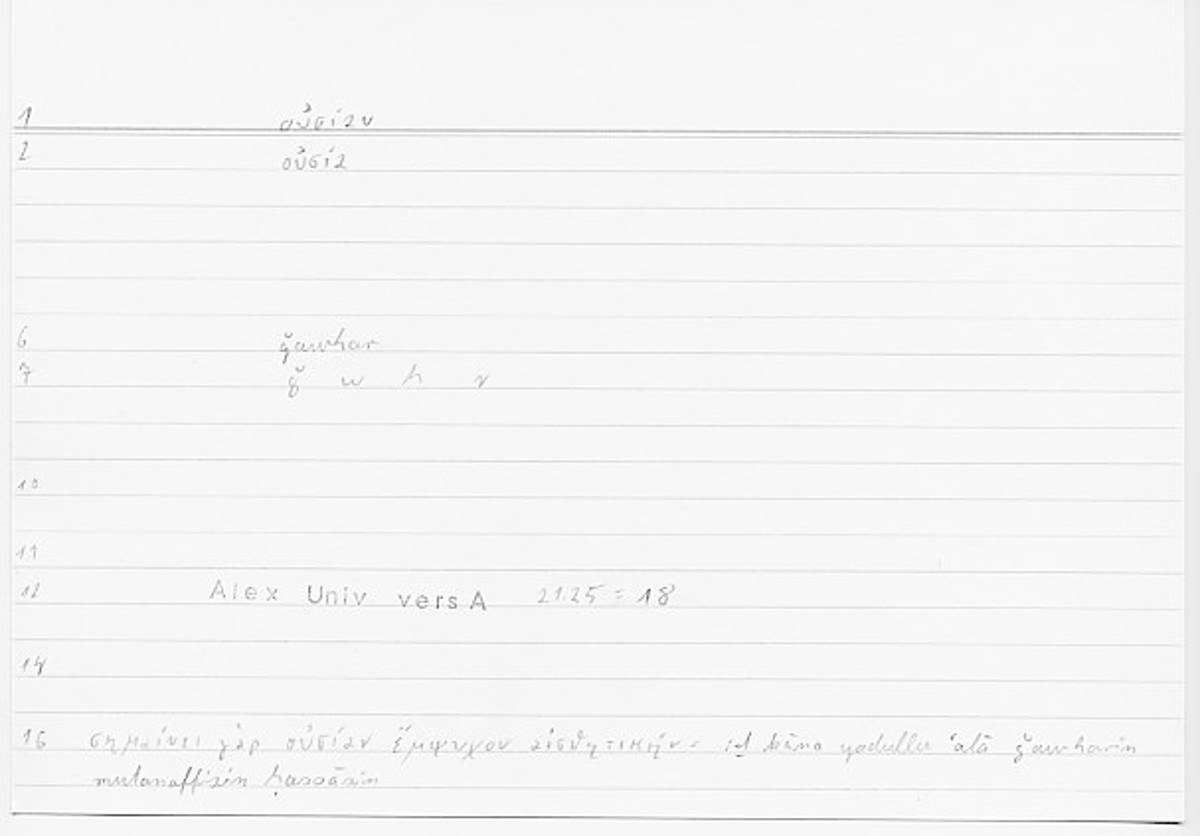 1 οὐσίαν
2 οὐσία
6 ǧawhar
7 ǧ w h r
10
11
12 Alex Univ vers A 21.25 = 18
14
16 σημαίνει γὰρ οὐσίαν ἔμψυχον αἰσθητικήν = iḏ kāna yadullu ʿalā ǧawharin
mutanaffisin ḥassāsin